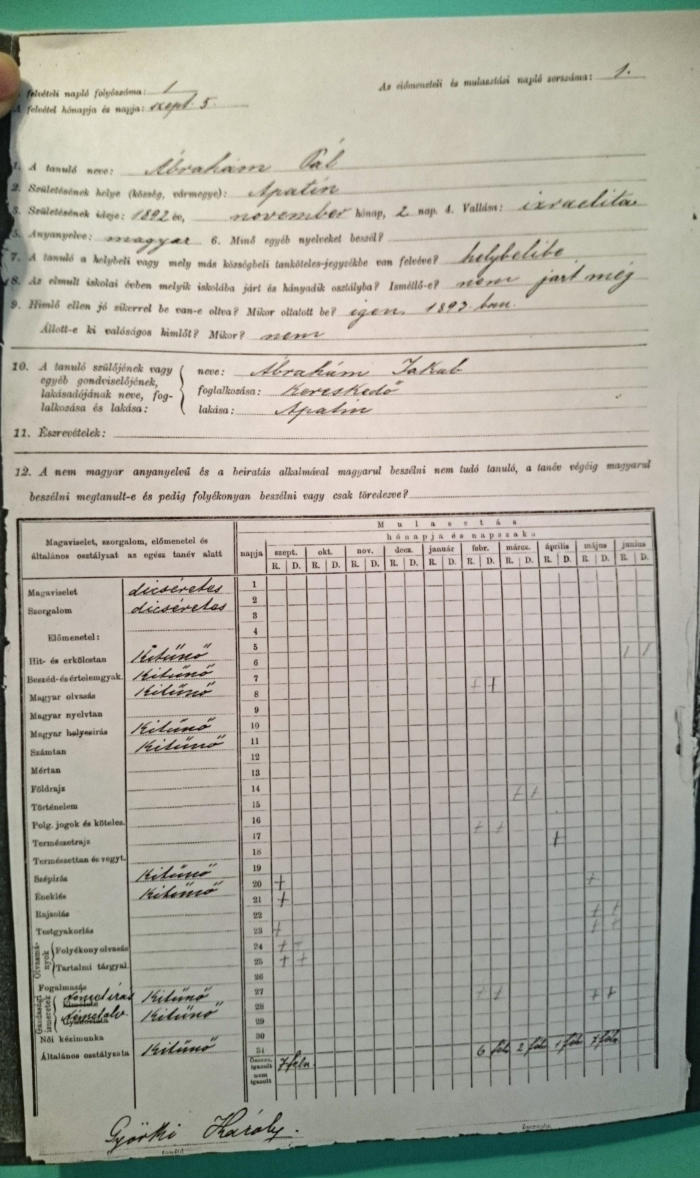 felvételi napló folyószáma: 1
Az előmeneteli és mulasztási napló sorszáma: 1.
A felvétel hónapja és napja: szept 5.
1. A tanuló neve: Ábrahám Pál
2. Születésének helye (község, vármegye): Apatin
3. Születésének ideje: 1892 év, november hónap, 2 nap. 4. Vallása: izraelita
5. Anyanyelve: magyar 6. Minő egyéb nyelveket beszél?
7. A tanuló a helybeli vagy mely más községbeli tanköteles-jegyzékbe van felvéve? helybelibe
8. Az elmult iskolai évben melyik iskolába járt és hányadik osztályba? Ismétlő-e? nem járt még
9. Himlő ellen jó sikerrel be van-e oltva? Mikor oltatott be? igen, 1893. ban.
Állott-e ki valóságos himlőt? Mikor? nem
10. A tanuló szülőjének vagy egyéb gondviselőjének, lakásadójának neve, foglalkozása és lakása:
neve: Ábrahám Jakab
foglalkozása: Kereskedő
lakása: Apatin
11. Észrevételek:
12. A nem magyar anyanyelvű és a beiratás alkalmával magyarul beszélni nem tudó tanuló, a tanév végéig magyarul
beszélni megtanult-e és pedig folyékonyan beszélni vagy csak töredezve?
Mulasztás
hónapja és napszaka
Magaviselet, szorgalom, előmenetel és
általános osztályzat az egész tanév alatt
napja szept. okt. nov. decz. január febr. márcz. április május junius
R. D. R. D. R. D. R. D. R. D. R. D. R. D. R. D. R. D. R. D.
Magaviselet dicséretes 1
Szorgalom dicséretes 2
3
Előmenetel: 4
5
Hit- és erkölcstan Kitűnő 6
Beszéd- és értelemgyak. Kitűnő 7
Magyar olvasás Kitűnő 8
Magyar nyelvtan 9
Magyar helyesírás Kitűnő 10
Számtan Kitűnő 11
12
Mértan 13
Földrajz 14
Történelem 15
Polg. jogok és köteles. 16
Természetrajz 17
Természettan és vegyt. 18
Szépirás Kitűnő 19
20
Éneklés Kitűnő 21
Rajzolás 22
Testgyakorlás 23
Olvasmányok
Folyékony olvasás 24
Tartalmi tárgyal. 25
26
Fogalmazás 27
Gazdasági ismeretek
Németírás Kitűnő 28
Németolv. Kitűnő 29
Női kézimunka 30
Általános osztályzata Kitűnő 31
Összes. igazolt nem igazolt 7 féln. 6 fél 2 fél 1 fél 7 féln
Györki Károly.
tanító